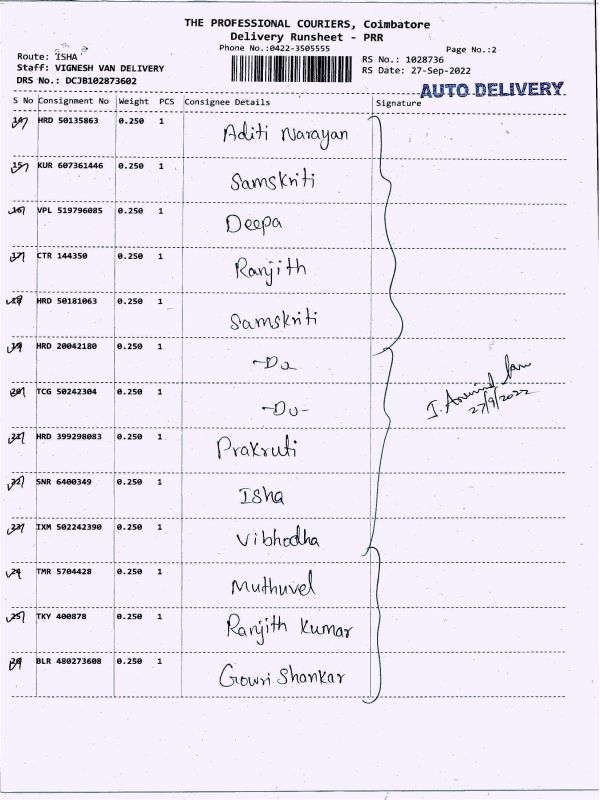 THE PROFESSIONAL COURIERS, Coimbatore
Delivery Runsheet - PRR
Phone No.:0422-3505555
Page No.:2
Route: ISHA
Staff: VIGNESH VAN DELIVERY
DRS No.: DCJB102873602
RS No.: 1028736
RS Date: 27-Sep-2022
AUTO DELIVERY
S No Consignment No Weight PCS Consignee Details Signature
14 HRD 50135863 0.250 1 Aditi Narayan
15 KUR 607361446 0.250 1 Samskriti
16 VPL 519796085 0.250 1 Deepa
17 CTR 144350 0.250 1 Ranjith
18 HRD 50181063 0.250 1 Samskriti
19 HRD 20042180 0.250 1 -Do
20 TCG 50242304 0.250 1 -Do-
21 HRD 399298083 0.250 1 Prakruti
22 SNR 6400349 0.250 1 Isha
23 IXM 502242390 0.250 1 Vibhodha
24 TMR 5704428 0.250 1 Muthuvel
25 TKY 400878 0.250 1 Ranjith Kumar
26 BLR 480273608 0.250 1 Gowri Shankar
27/9/2022